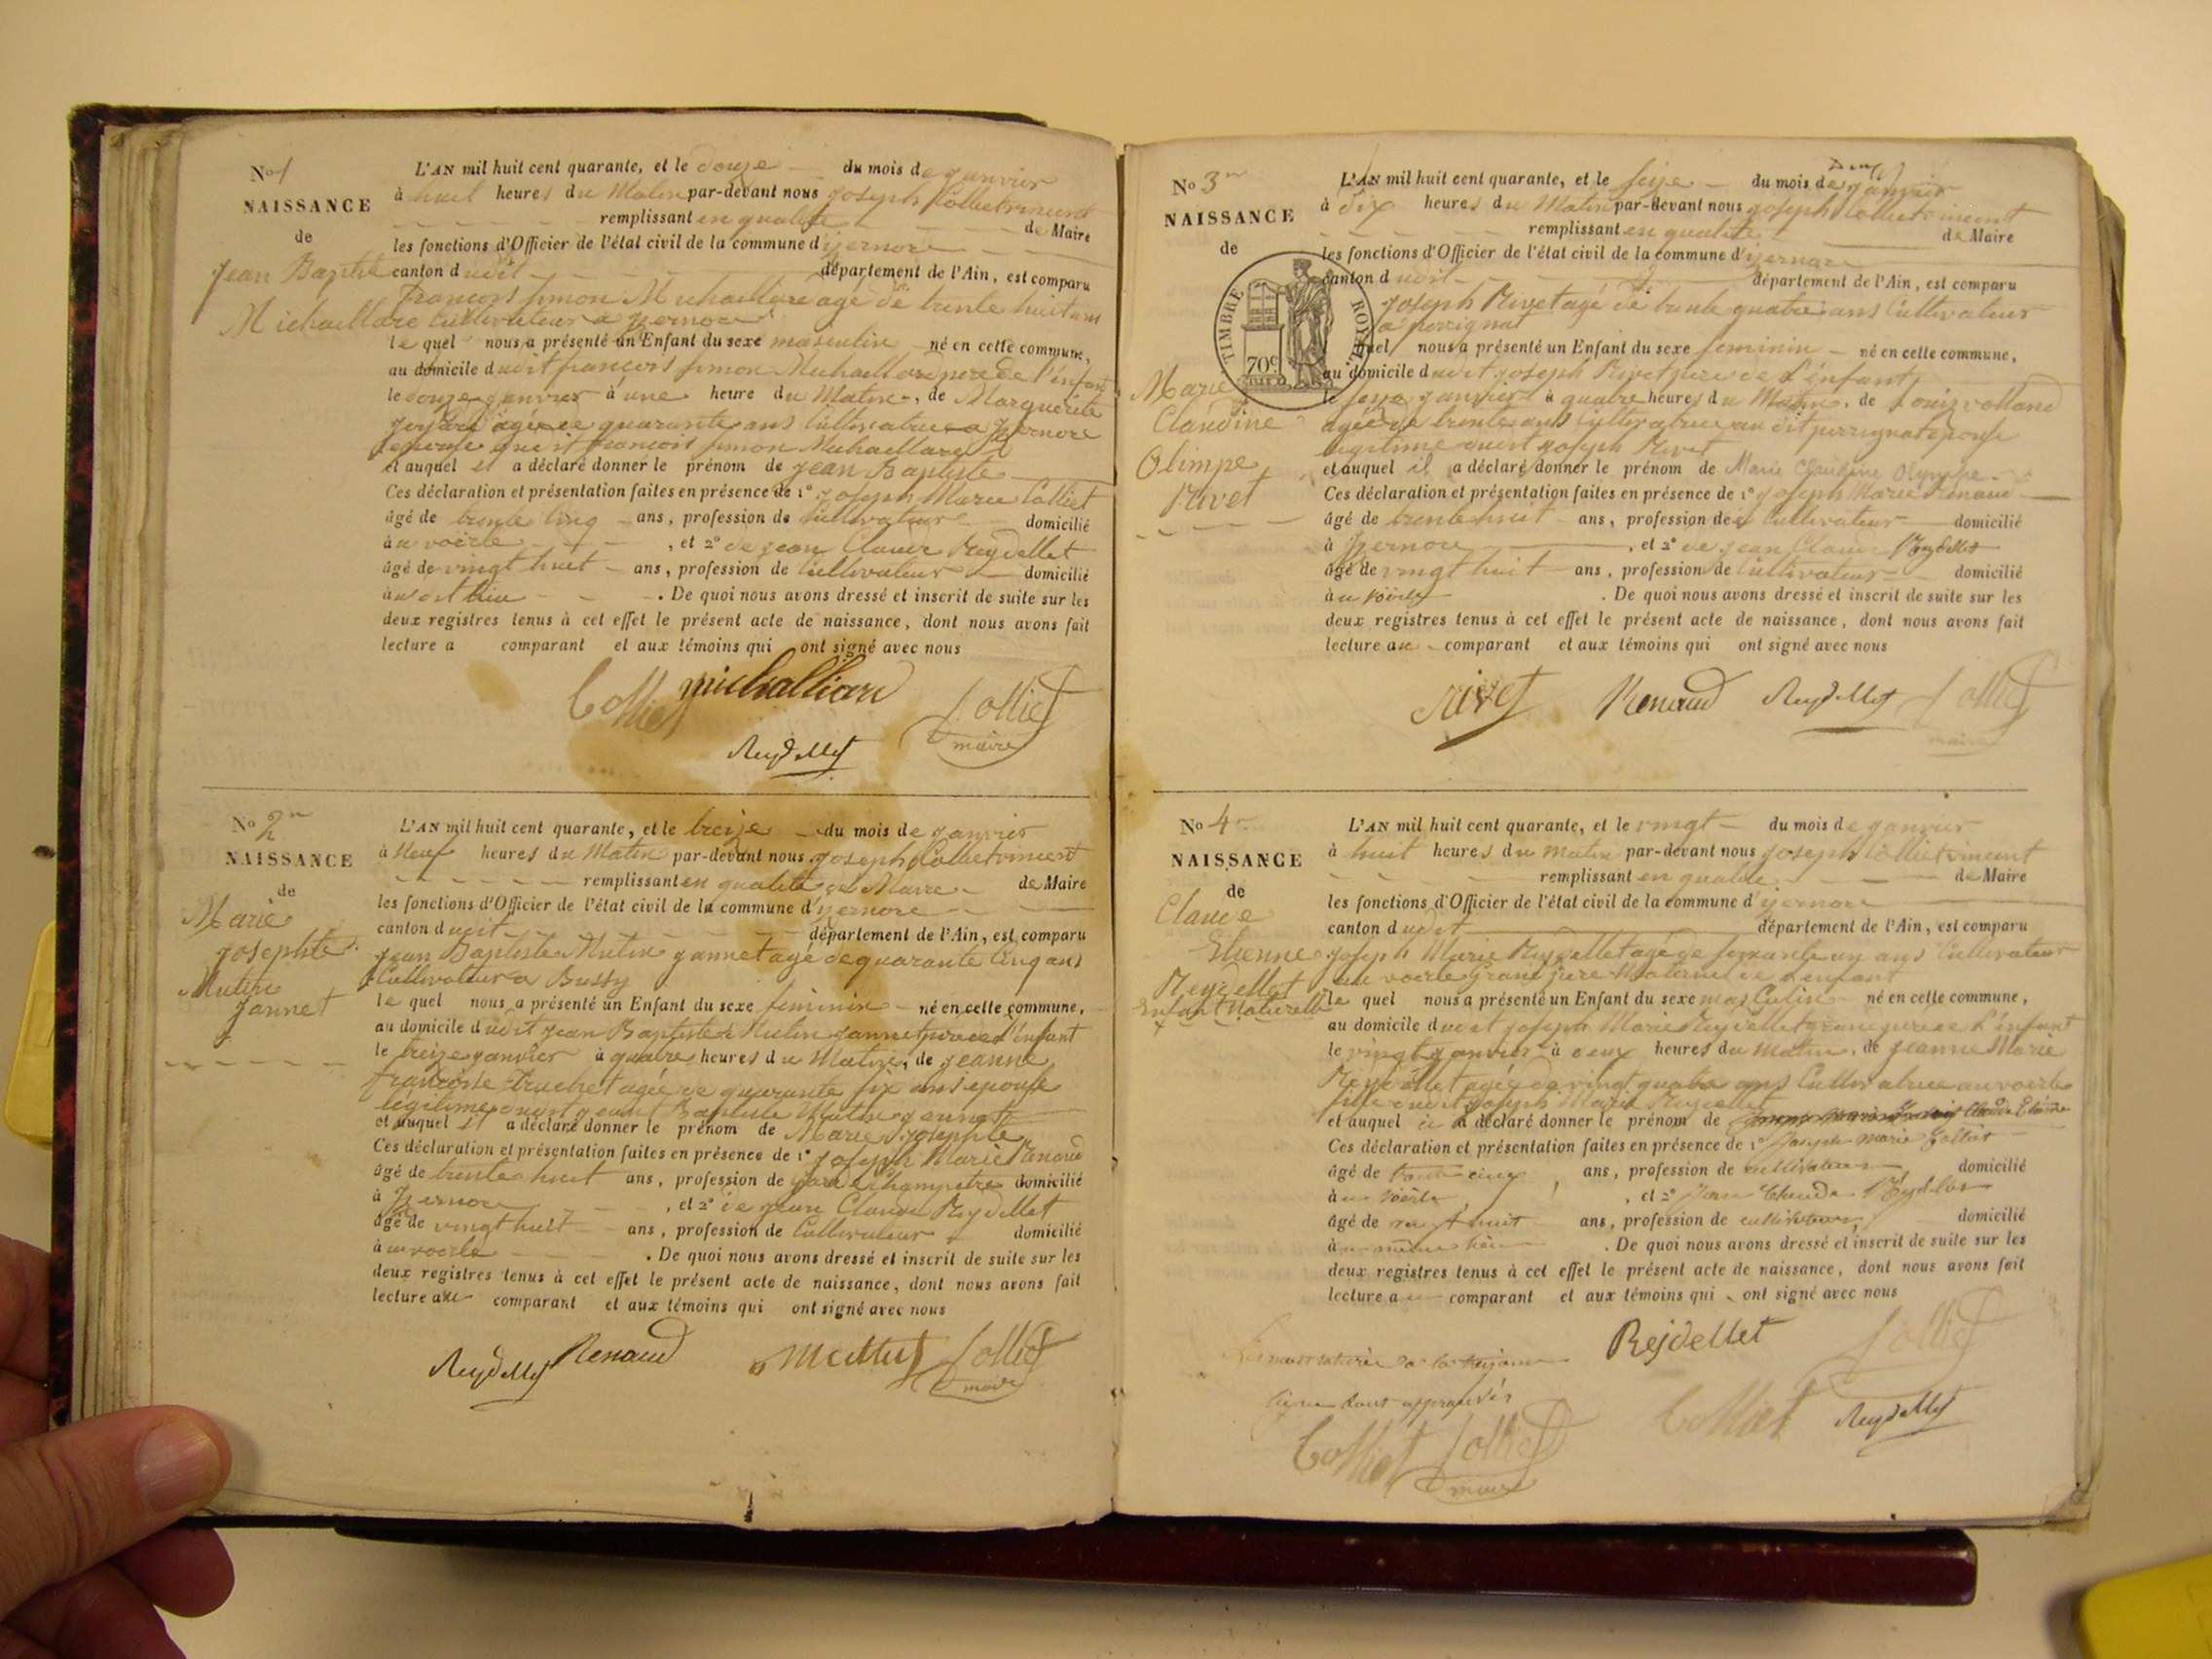 No 1
NAISSANCE
de
Jean Baptiste
Michaillard
L'AN mil huit cent quarante, et le douze du mois de janvier
à huit heures du Matin par-devant nous joseph Colliet vincent
remplissant en qualité de Maire
les fonctions d'Officier de l'état civil de la commune d'izernore
canton dudit département de l'Ain, est comparu
françois simon Michaillard agé de trente huit ans
Cultivateur a izernore
le quel nous a présenté un Enfant du sexe masculin né en cette commune,
au domicile dudit françois simon Michaillard pere de l'enfant
le douze janvier à une heure du Matin, de Marguerite
agée de quarante ans Cultivatrice a izernore
epouse dudit francois simon Michaillard
et auquel il a déclaré donner le prénom de jean Baptiste
Ces déclaration et présentation faites en présence de 1° joseph Marie Colliet
âgé de trente cinq ans, profession de Cultivateur domicilié
à u voerle, et 2° de jean Claude Reydellet
âgé de vingt huit ans, profession de Cultivateur domicilié
à udit lieu. De quoi nous avons dressé et inscrit de suite sur les
deux registres tenus à cet effet le présent acte de naissance, dont nous avons fait
lecture a comparant et aux témoins qui ont signé avec nous
Colliet michalliard Colliet
maire
Reydellet
No 2
NAISSANCE
de
Marie
josephte
Mutin
jannet
L'AN mil huit cent quarante, et le treize du mois de janvier
à Neuf heures du Matin par-devant nous joseph Colliet vincent
remplissant en qualité de Maire de Maire
les fonctions d'Officier de l'état civil de la commune d'izernore
canton dudit département de l'Ain, est comparu
jean Baptiste Mutin jannet agé de quarante cinq ans
Cultivateur a Bussy
le quel nous a présenté un Enfant du sexe feminin né en cette commune,
au domicile dudit jean Baptiste Mutin jannet pere de l'enfant
le treize janvier à quatre heures du Matin, de jeanne
francoise truchet agée de quarante six ans epouse
legitime dudit jean Baptiste Mutin jannet
et auquel il a déclaré donner le prénom de Marie josephte
Ces déclaration et présentation faites en présence de 1° joseph Marie Renaud
âgé de trente huit ans, profession de garde champetre domicilié
à izernore, et 2° de jean Claude Reydellet
âgé de vingt huit ans, profession de Cultivateur domicilié
à u voerle. De quoi nous avons dressé et inscrit de suite sur les
deux registres tenus à cet effet le présent acte de naissance, dont nous avons fait
lecture au comparant et aux témoins qui ont signé avec nous
Reydellet Renaud Colliet
maire
No 3
NAISSANCE
de
TIMBRE ROYAL
70c
Marie
Claudine
Olimpe
Rivet
L'AN mil huit cent quarante, et le seize du mois de janvier
à dix heures du Matin par-devant nous joseph Colliet vincent
remplissant en qualité de Maire
les fonctions d'Officier de l'état civil de la commune d'izernore
canton dudit département de l'Ain, est comparu
joseph Rivet agé de trente quatre ans Cultivateur
a perrignat
quel nous a présenté un Enfant du sexe feminin né en cette commune,
au domicile dudit joseph Rivet pere de l'enfant
le seize janvier à quatre heures du Matin, de Louize volland
agée de trente ans Cultivatrice au dit perrignat epouse
legitime dudit joseph Rivet
et auquel il a déclaré donner le prénom de Marie Claudine Olympe
Ces déclaration et présentation faites en présence de 1° joseph Marie Renaud
âgé de trente huit ans, profession de Cultivateur domicilié
à izernore, et 2° de jean Claude Reydellet
âgé de vingt huit ans, profession de Cultivateur domicilié
à u voerle. De quoi nous avons dressé et inscrit de suite sur les
deux registres tenus à cet effet le présent acte de naissance, dont nous avons fait
lecture au comparant et aux témoins qui ont signé avec nous
rivet Renaud Reydellet Colliet
maire
No 4
NAISSANCE
de
Claude
Etienne
Reydellet
enfant Naturelle
L'AN mil huit cent quarante, et le vingt du mois de janvier
à huit heures du matin par-devant nous joseph Colliet vincent
remplissant en qualité de Maire
les fonctions d'Officier de l'état civil de la commune d'izernore
canton dudit département de l'Ain, est comparu
joseph Marie Reydellet agé de soixante un ans Cultivateur
au voerle grand pere Maternel de l'enfant
le quel nous a présenté un Enfant du sexe masculin né en cette commune,
au domicile dudit joseph Marie Reydellet grand pere de l'enfant
le vingt janvier à deux heures du matin, de jeanne Marie
Reydellet agée de vingt quatre ans Cultivatrice au voerle
fille dudit joseph Marie Reydellet
et auquel il a déclaré donner le prénom de Claude Etienne
Ces déclaration et présentation faites en présence de 1° Joseph Marie Colliet
âgé de trente cinq ans, profession de cultivateur domicilié
à u voerle, et 2° jean Claude Reydellet
âgé de vingt huit ans, profession de cultivateur domicilié
à u même lieu. De quoi nous avons dressé et inscrit de suite sur les
deux registres tenus à cet effet le présent acte de naissance, dont nous avons fait
lecture au comparant et aux témoins qui ont signé avec nous
Rejdellet Colliet
ligne sont approuvés
Colliet Reydellet
Colliet Colliet
maire